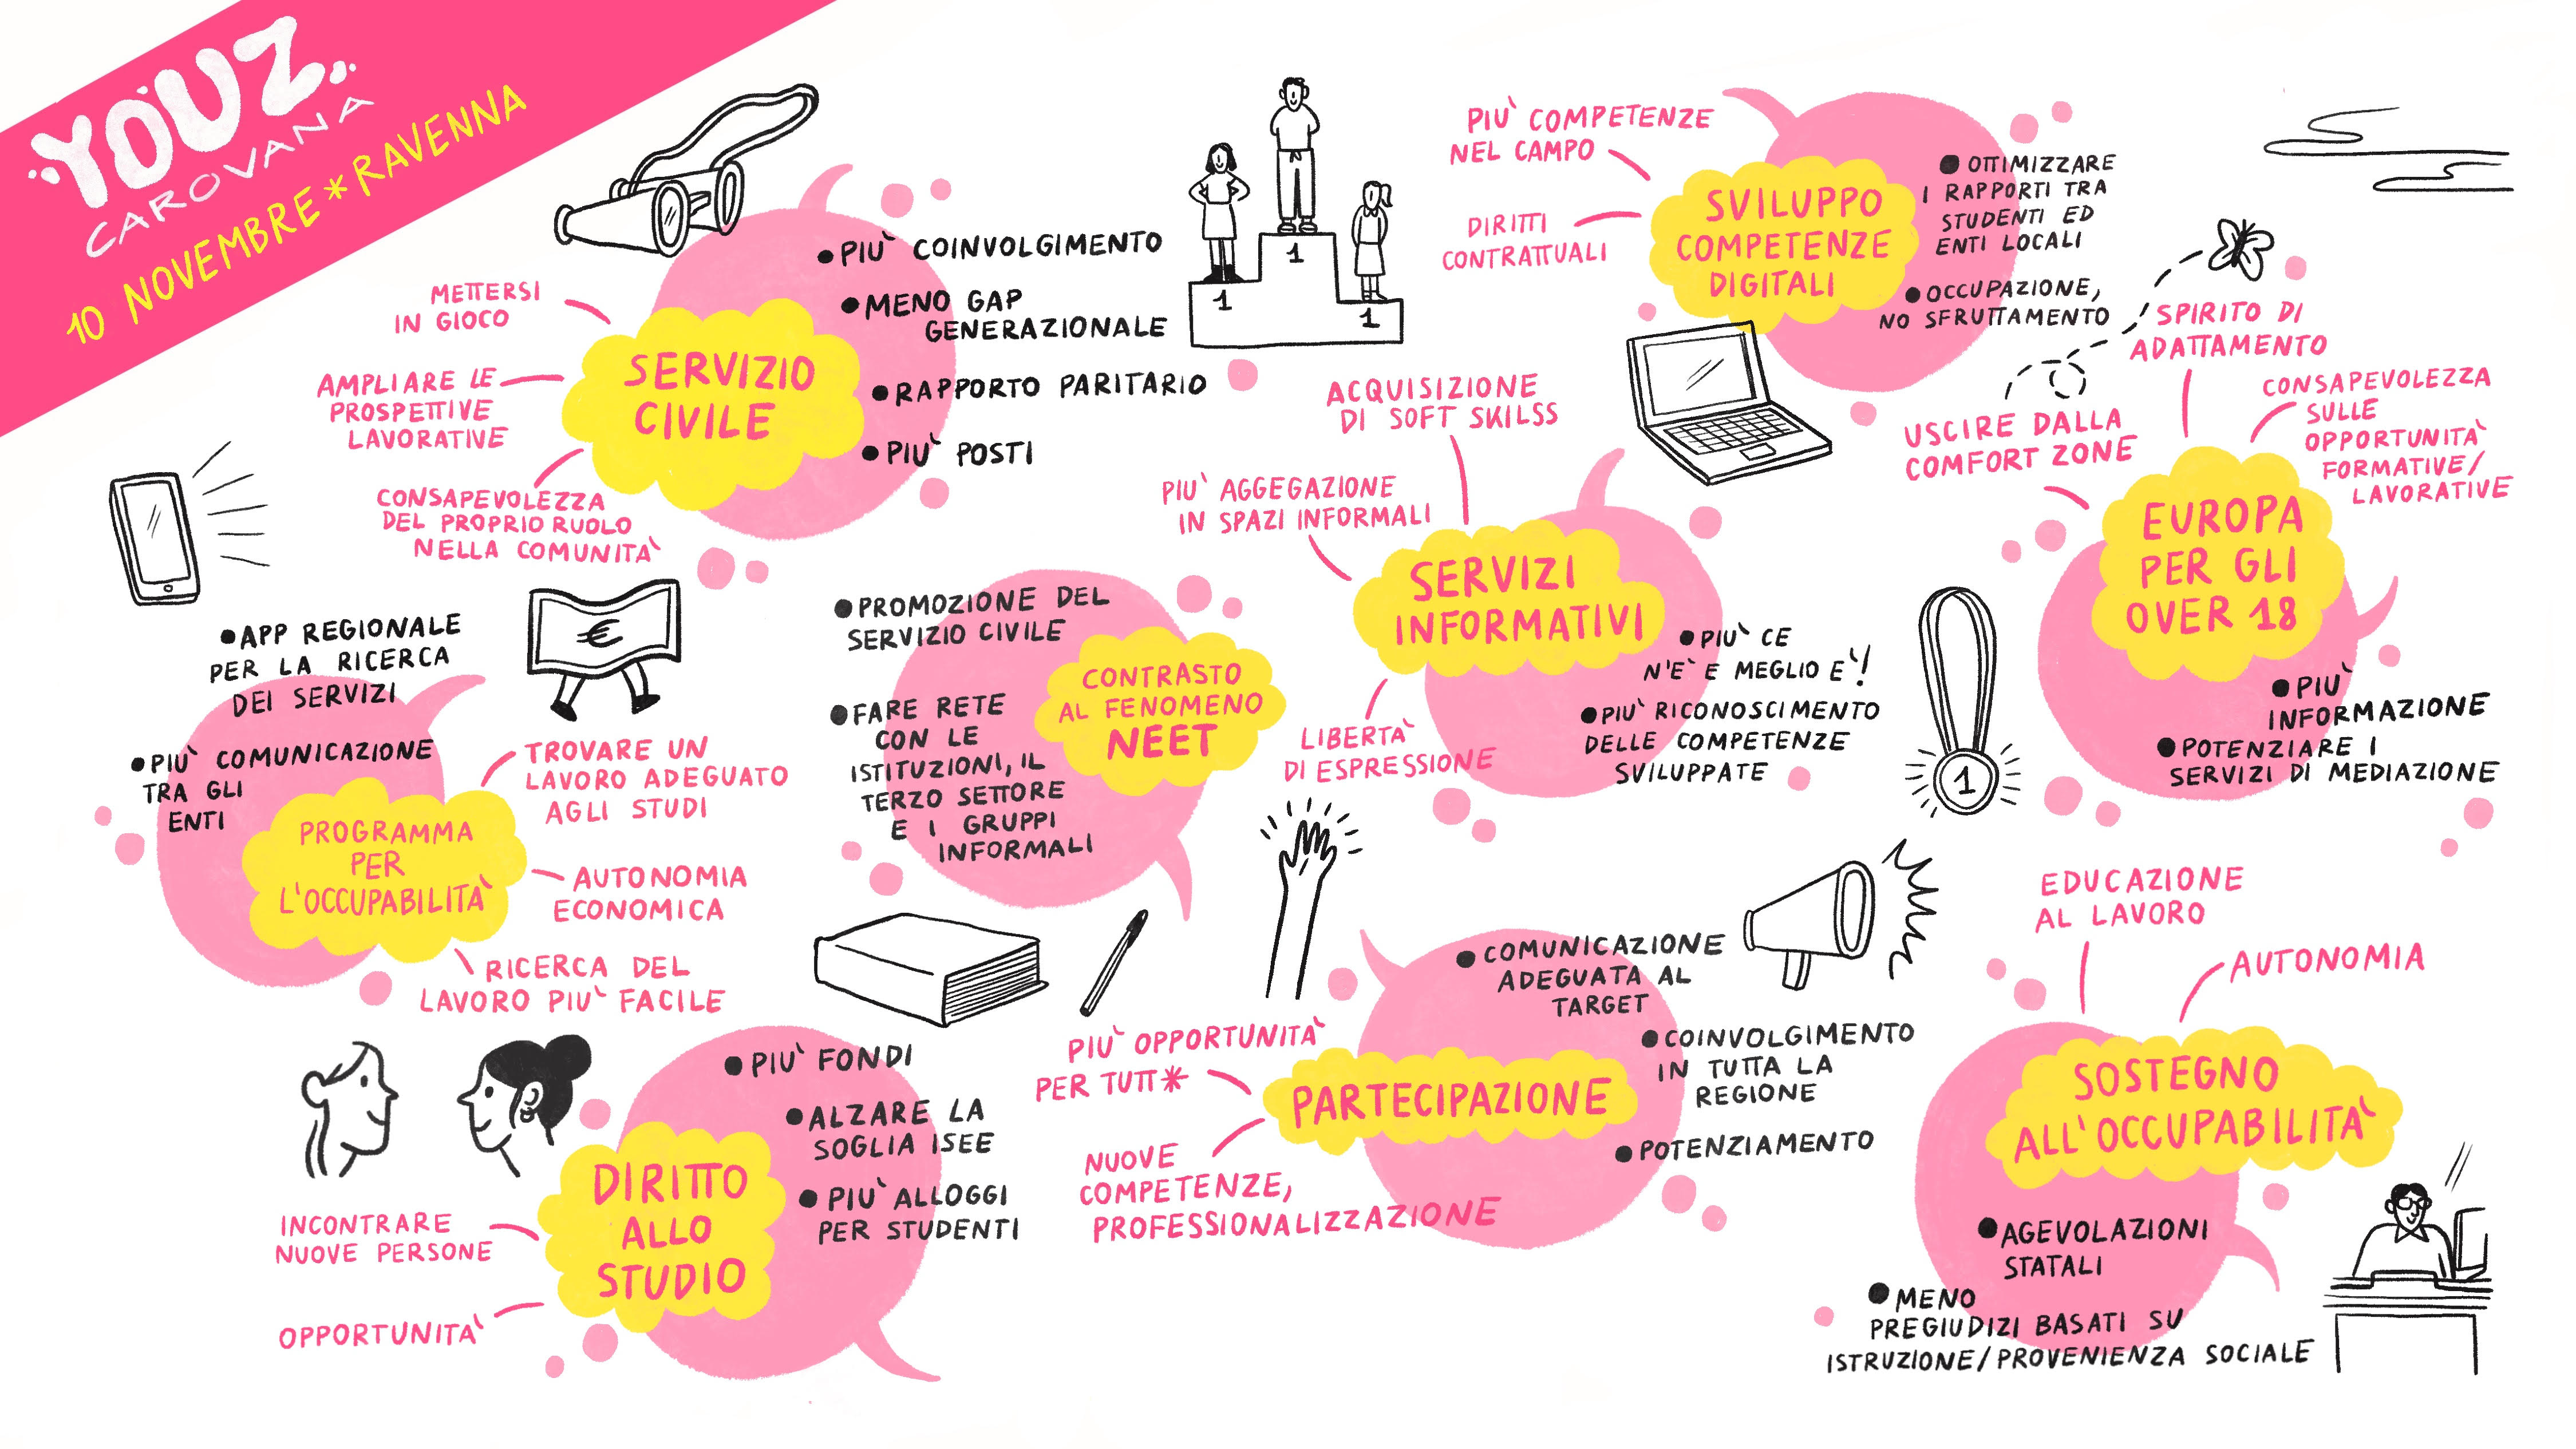 YOUZ
CAROVANA
10 NOVEMBRE * RAVENNA
METTERSI
IN GIOCO
AMPLIARE LE
PROSPETTIVE
LAVORATIVE
CONSAPEVOLEZZA
DEL PROPRIO RUOLO
NELLA COMUNITA'
SERVIZIO
CIVILE
• PIU' COINVOLGIMENTO
• MENO GAP
GENERAZIONALE
• RAPPORTO PARITARIO
• PIU' POSTI
1
1
1
PIU' COMPETENZE
NEL CAMPO
DIRITTI
CONTRATTUALI
SVILUPPO
COMPETENZE
DIGITALI
• OTTIMIZZARE
I RAPPORTI TRA
STUDENTI ED
ENTI LOCALI
• OCCUPAZIONE,
NO SFRUTTAMENTO
SPIRITO DI
ADATTAMENTO
USCIRE DALLA
COMFORT ZONE
CONSAPEVOLEZZA
SULLE
OPPORTUNITA'
FORMATIVE/
LAVORATIVE
EUROPA
PER GLI
OVER 18
• PIU'
INFORMAZIONE
• POTENZIARE I
SERVIZI DI MEDIAZIONE
ACQUISIZIONE
DI SOFT SKILSS
PIU' AGGEGAZIONE
IN SPAZI INFORMALI
SERVIZI
INFORMATIVI
LIBERTA'
DI ESPRESSIONE
• PIU' CE
N'E' E MEGLIO E'!
• PIU' RICONOSCIMENTO
DELLE COMPETENZE
SVILUPPATE
1
• PROMOZIONE DEL
SERVIZIO CIVILE
• FARE RETE
CON LE
ISTITUZIONI, IL
TERZO SETTORE
E I GRUPPI
INFORMALI
CONTRASTO
AL FENOMENO
NEET
€
• APP REGIONALE
PER LA RICERCA
DEI SERVIZI
• PIU' COMUNICAZIONE
TRA GLI
ENTI
PROGRAMMA
PER
L'OCCUPABILITA'
TROVARE UN
LAVORO ADEGUATO
AGLI STUDI
AUTONOMIA
ECONOMICA
RICERCA DEL
LAVORO PIU' FACILE
INCONTRARE
NUOVE PERSONE
OPPORTUNITA'
DIRITTO
ALLO
STUDIO
• PIU' FONDI
• ALZARE LA
SOGLIA ISEE
• PIU' ALLOGGI
PER STUDENTI
PIU' OPPORTUNITA'
PER TUTT*
NUOVE
COMPETENZE,
PROFESSIONALIZZAZIONE
PARTECIPAZIONE
• COMUNICAZIONE
ADEGUATA AL
TARGET
• COINVOLGIMENTO
IN TUTTA LA
REGIONE
• POTENZIAMENTO
EDUCAZIONE
AL LAVORO
AUTONOMIA
SOSTEGNO
ALL'OCCUPABILITA'
• AGEVOLAZIONI
STATALI
• MENO
PREGIUDIZI BASATI SU
ISTRUZIONE/PROVENIENZA SOCIALE